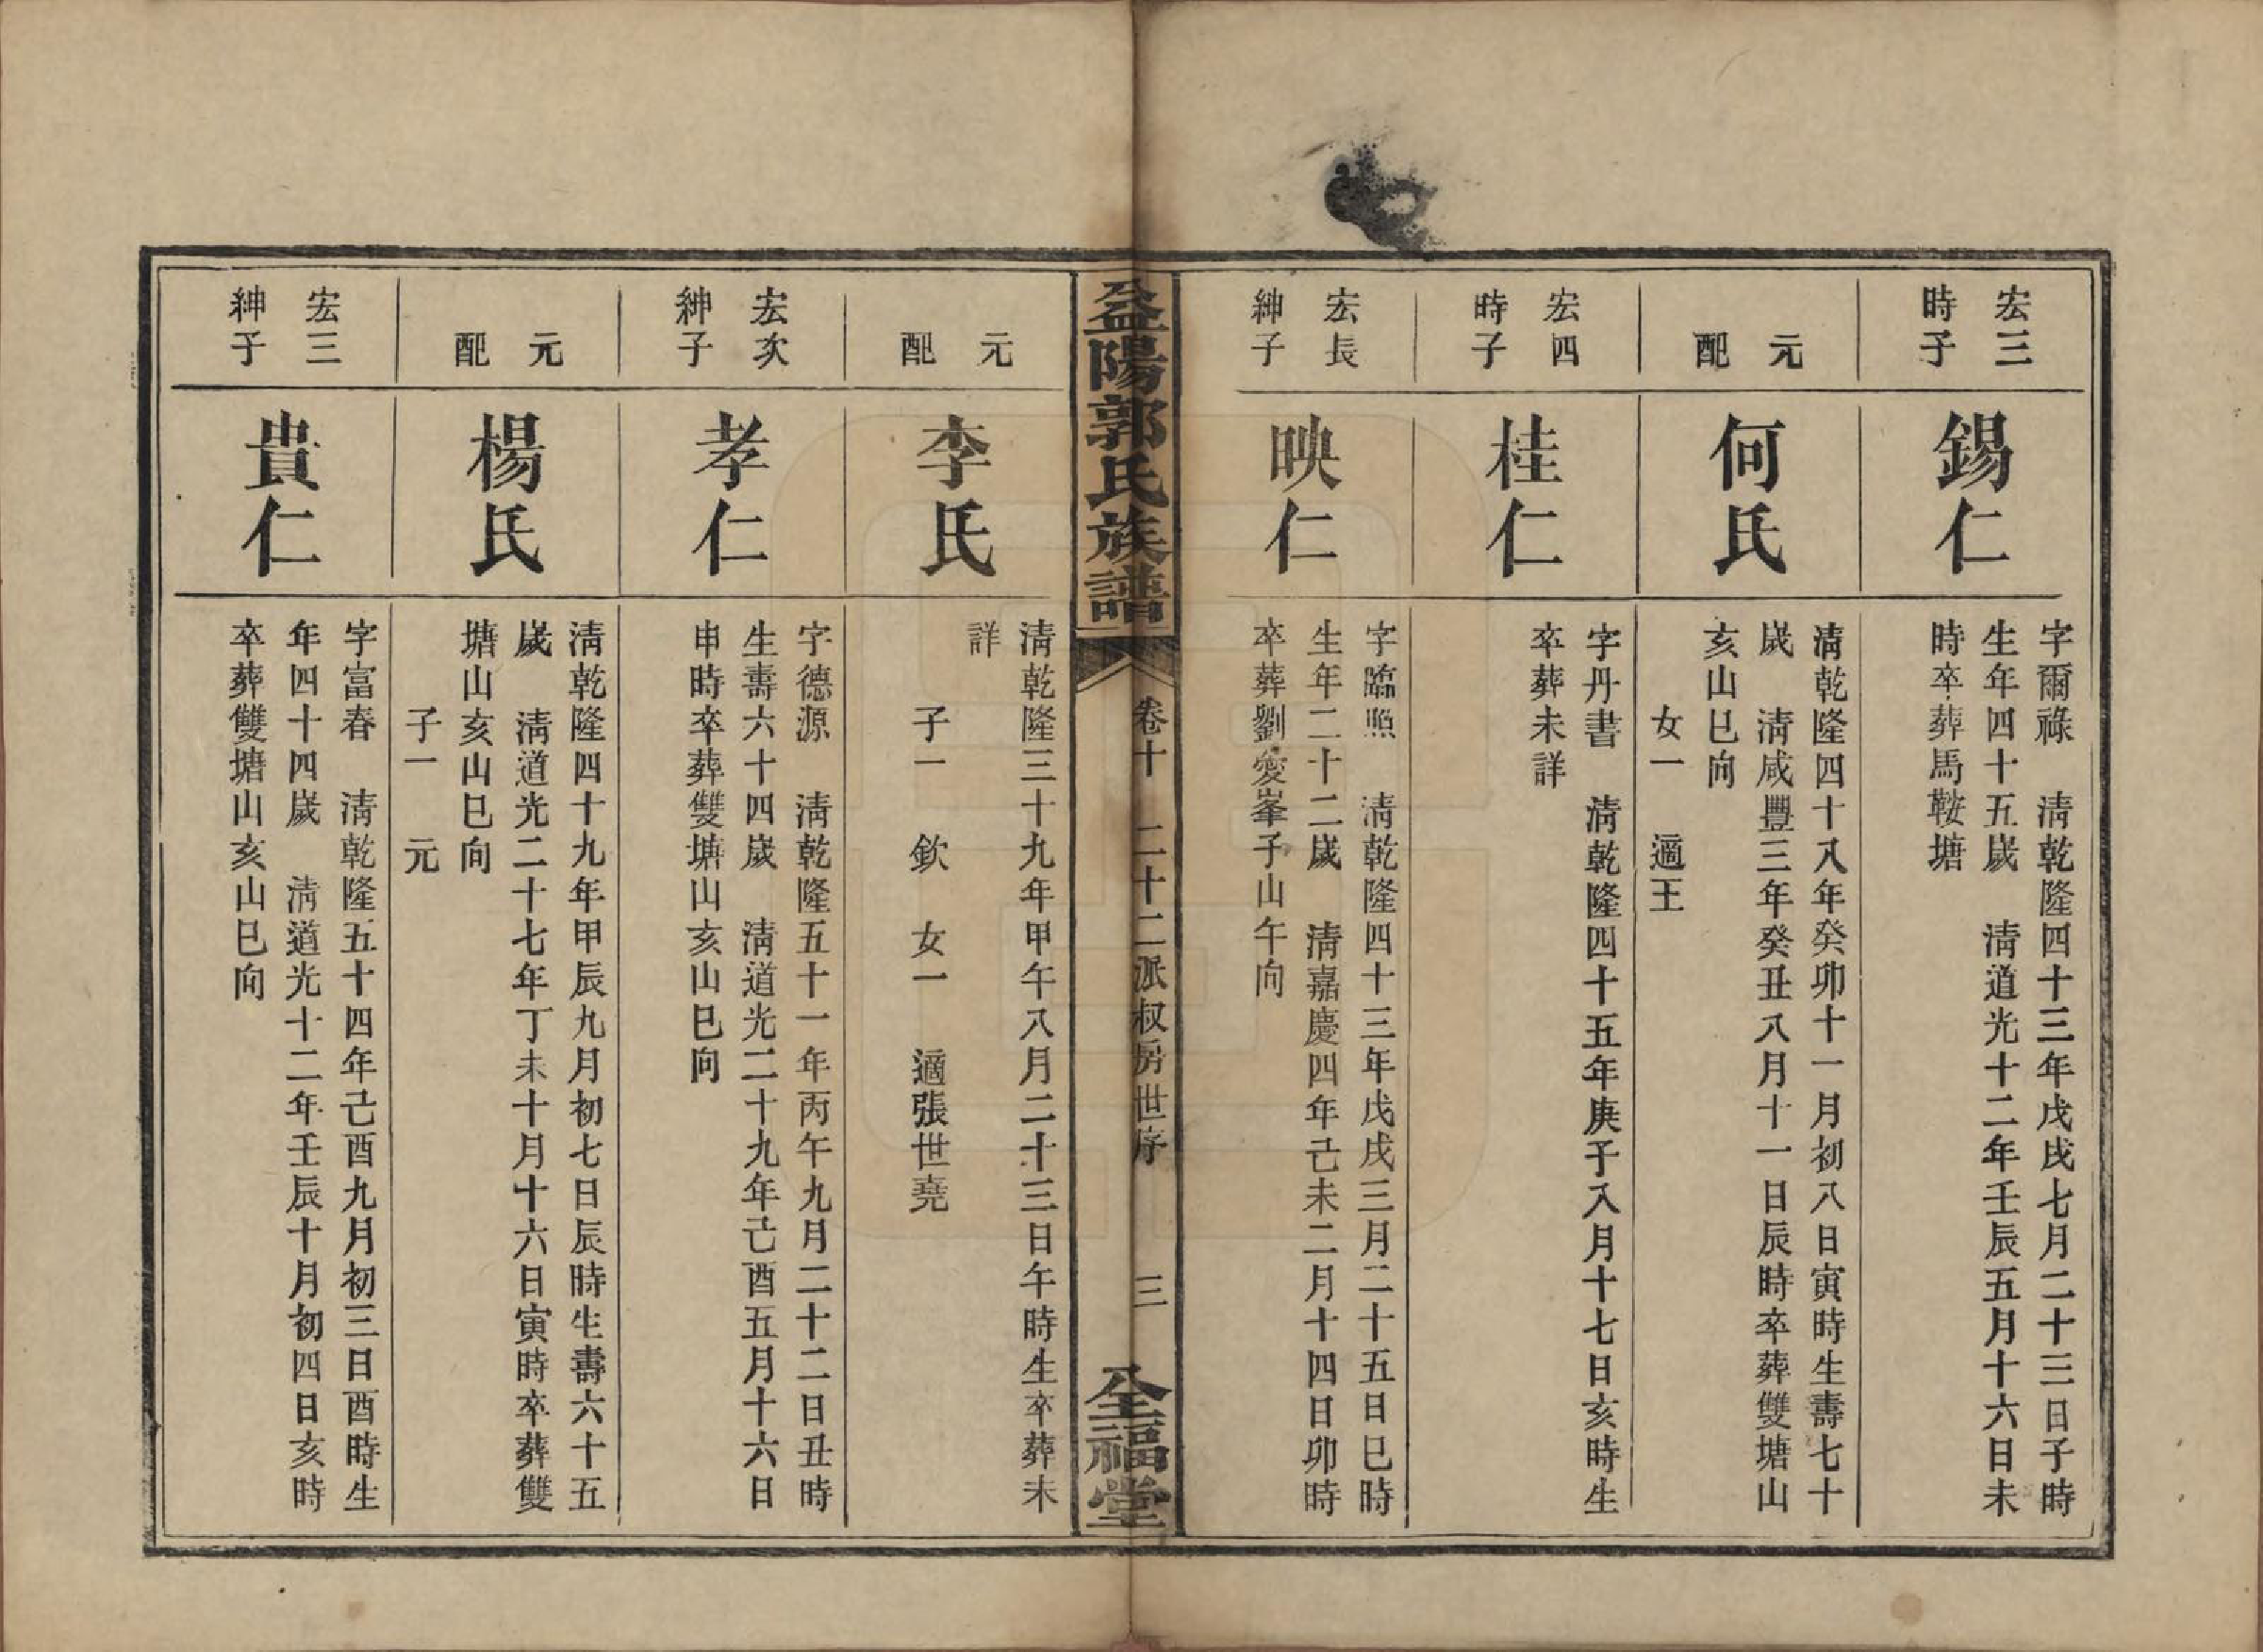 宏三
時子
錫仁
字爾祿　清乾隆四十三年戊戌七月二十三日子時
生年四十五歲　清道光十二年壬辰五月十六日未
時卒葬馬鞍塘
元
配
何氏
清乾隆四十八年癸卯十一月初八日寅時生壽七十
歲　清咸豐三年癸丑八月十一日辰時卒葬雙塘山
亥山巳向
女一　適王
宏四
時子
桂仁
字丹書　清乾隆四十五年庚子八月十七日亥時生
卒葬未詳
宏長
紳子
映仁
字臨照　清乾隆四十三年戊戌三月二十五日巳時
生年二十二歲　清嘉慶四年己未二月十四日卯時
卒葬劉愛峯子山午向
益陽郭氏族譜
卷十　二十二派叔房世序　三
全福堂
元
配
李氏
清乾隆三十九年甲午八月二十三日午時生卒葬未
詳
子一　欽　女一　適張世堯
宏次
紳子
孝仁
字德源　清乾隆五十一年丙午九月二十二日丑時
生壽六十四歲　清道光二十九年己酉五月十六日
申時卒葬雙塘山亥山巳向
元
配
楊氏
清乾隆四十九年甲辰九月初七日辰時生壽六十五
歲　清道光二十七年丁未十月十六日寅時卒葬雙
塘山亥山巳向
子一　元
宏三
紳子
貴仁
字富春　清乾隆五十四年己酉九月初三日酉時生
年四十四歲　清道光十二年壬辰十月初四日亥時
卒葬雙塘山亥山巳向